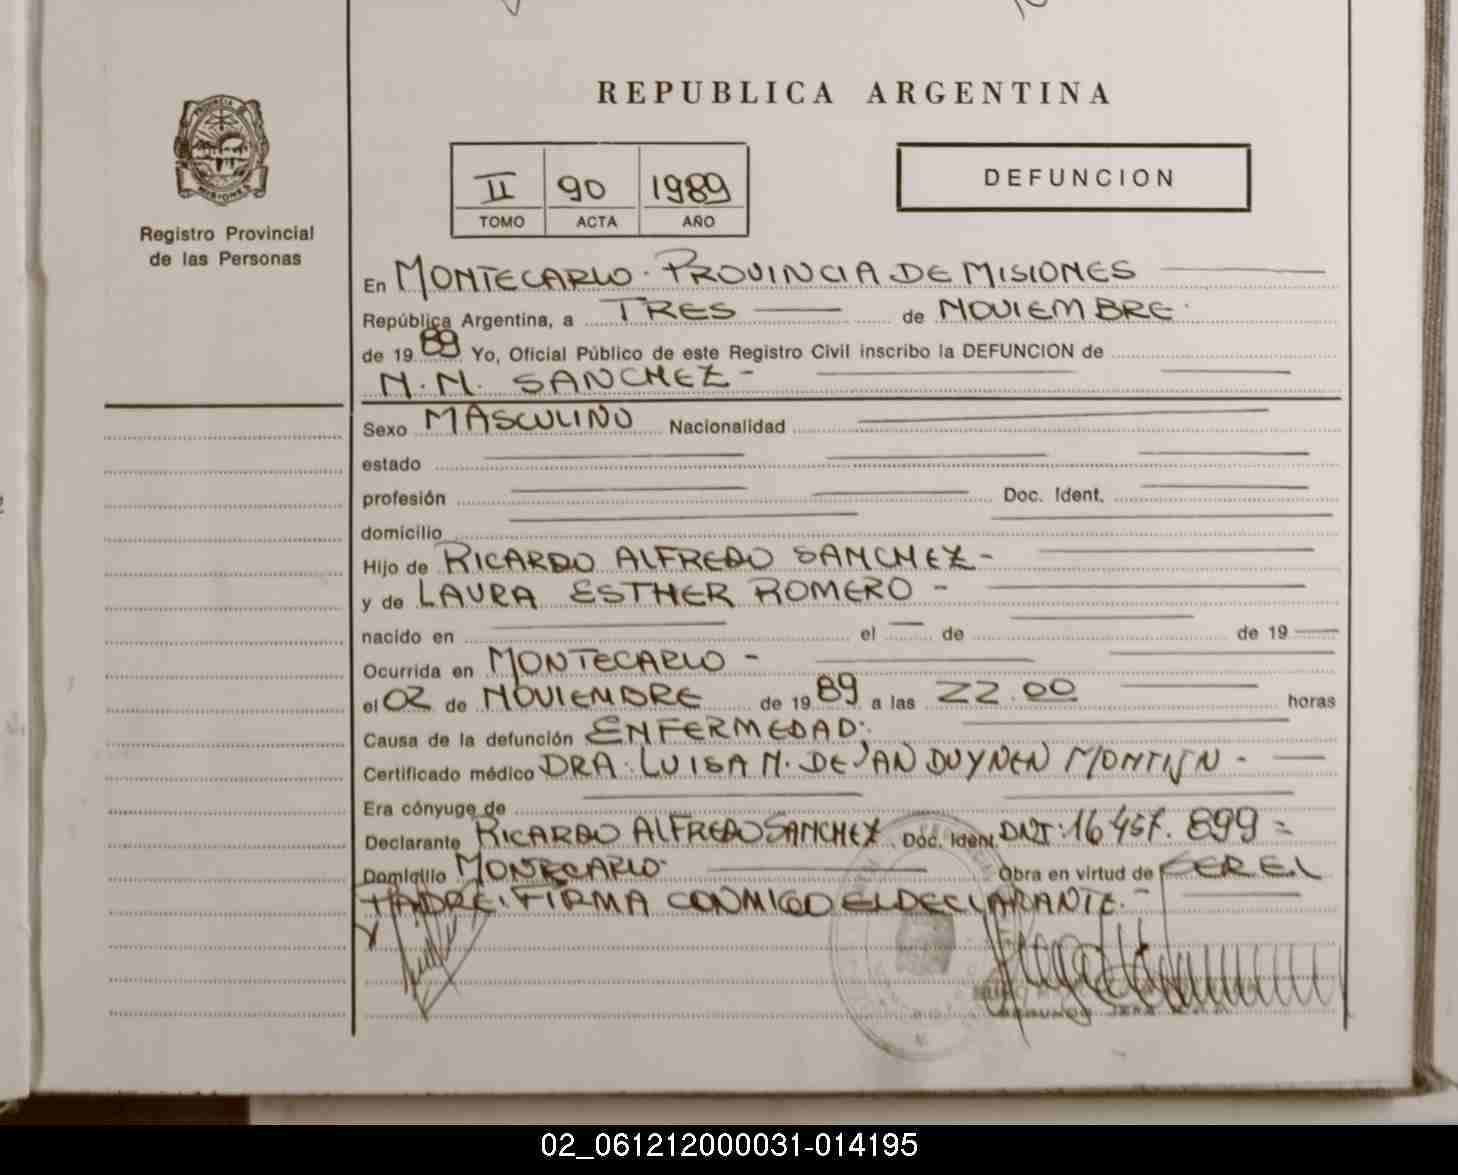 REPUBLICA ARGENTINA
II 90 1989
TOMO ACTA AÑO
DEFUNCION
Registro Provincial
de las Personas
En MONTECARLO. PROVINCIA DE MISIONES
República Argentina, a TRES de NOVIEMBRE.
de 19 89 Yo, Oficial Público de este Registro Civil inscribo la DEFUNCION de
N.N. SANCHEZ -
Sexo MASCULINO Nacionalidad
estado
profesión Doc. Ident.
domicilio
Hijo de RICARDO ALFREDO SANCHEZ -
y de LAURA ESTHER ROMERO -
nacido en el de de 19
Ocurrida en MONTECARLO -
el 02 de NOVIEMBRE de 19 89 a las 22.00 horas
Causa de la defunción ENFERMEDAD.
Certificado médico DRA. LUISA M. DE VAN DUYNEN MONTIJN -
Era cónyuge de
Declarante RICARDO ALFREDO SANCHEZ Doc. Ident. DNI: 16.457.899 =
Domicilio MONTECARLO Obra en virtud de SER EL
PADRE. FIRMA CONMIGO EL DECLARANTE. -
02_061212000031-014195